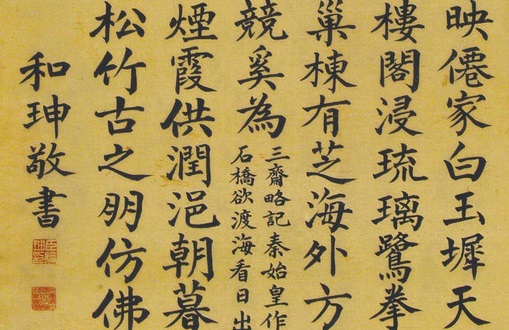 映僊家白玉墀天
樓閣浸琉璃鷺拳
巢棟有芝海外方
競奚為
三齋略記秦始皇作
石橋欲渡海看日出
煙霞供潤浥朝暮
松竹古之朋仿佛
和珅敬書